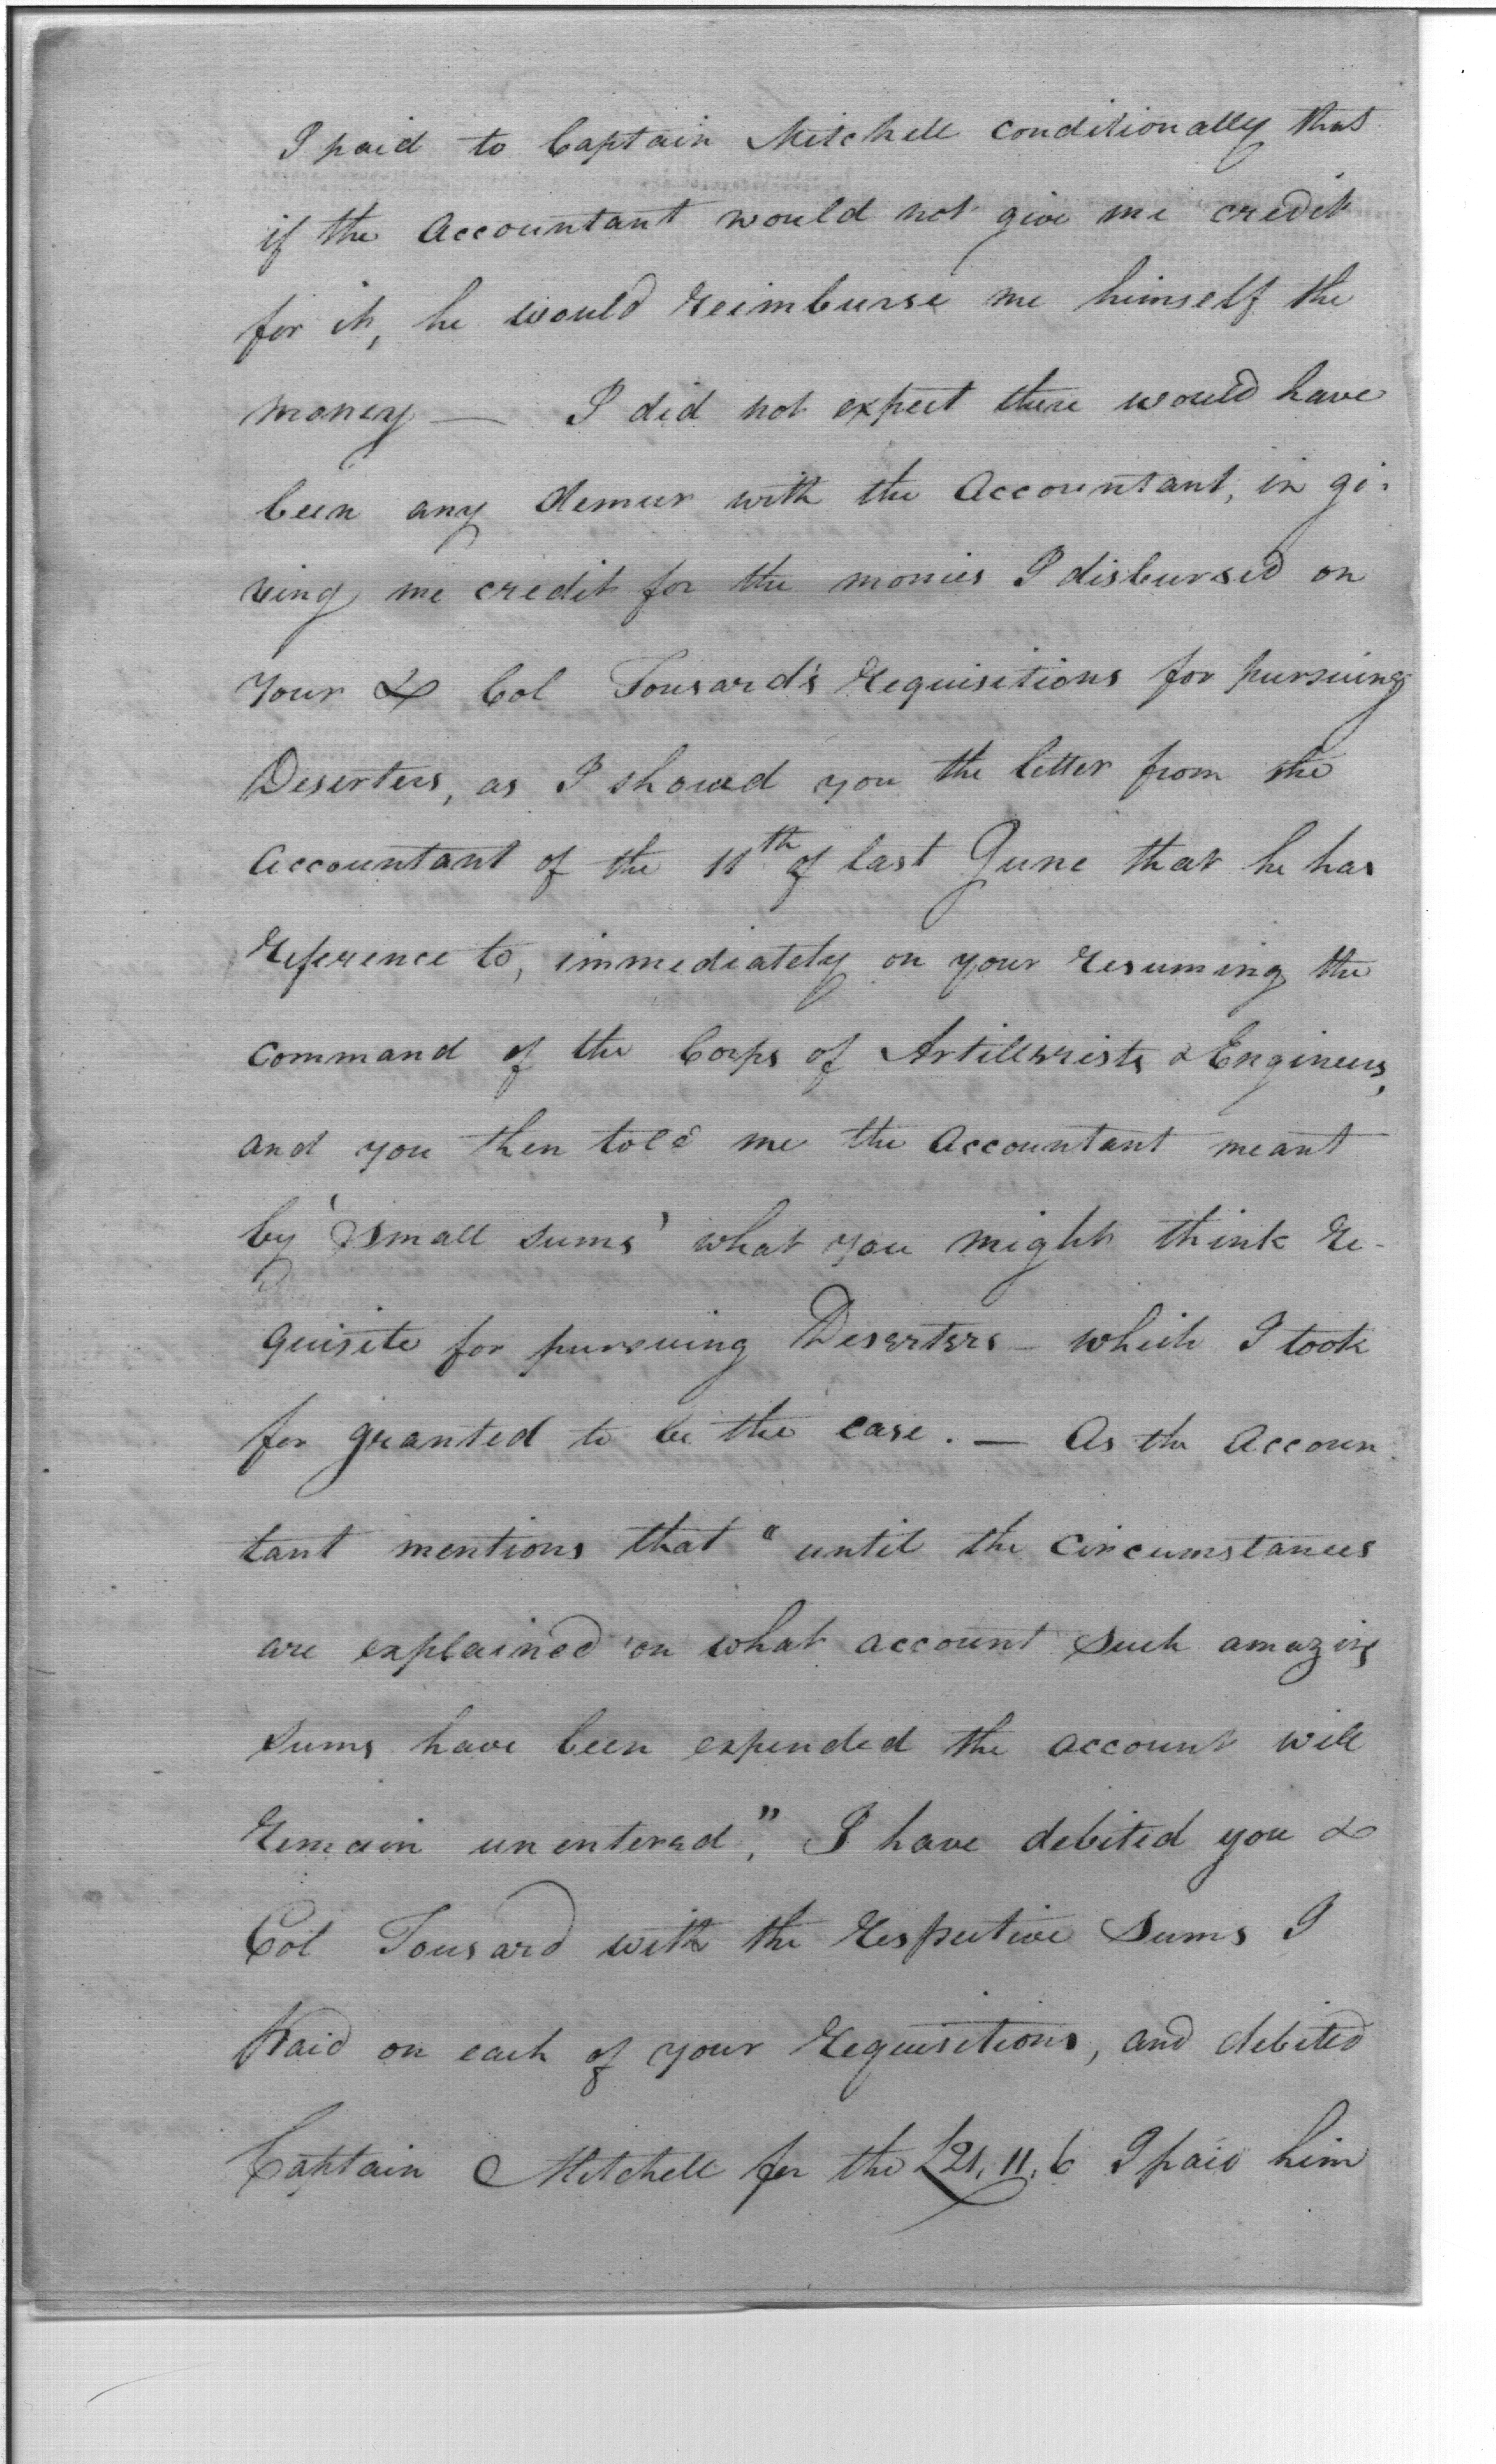 I paid to Captain Mitchell conditionally that
if the Accountant would not give me credit
for it, he would reimburse me himself the
money — I did not expect there would have
been any demur with the Accountant, in gi-
ving me credit for the monies I disbursed on
your & Col Tousard's requisitions for pursuing
Deserters, as I showed you the letter from the
Accountant of the 11th of last June that he has
reference to, immediately on your resuming the
command of the Corps of Artillerists & Engineers,
and you then told me the Accountant meant
by 'small sums' what you might think re-
quisite for pursuing Deserters — which I took
for granted to be the case. — As the Accoun
tant mentions that "until the circumstances
are explained on what account such amazing
sums have been expended the account will
remain unentered". I have debited you &
Col Tousard with the respective sums I
paid on each of your requisitions, and debited
Captain Mitchell for the £21.11.6 I paid him